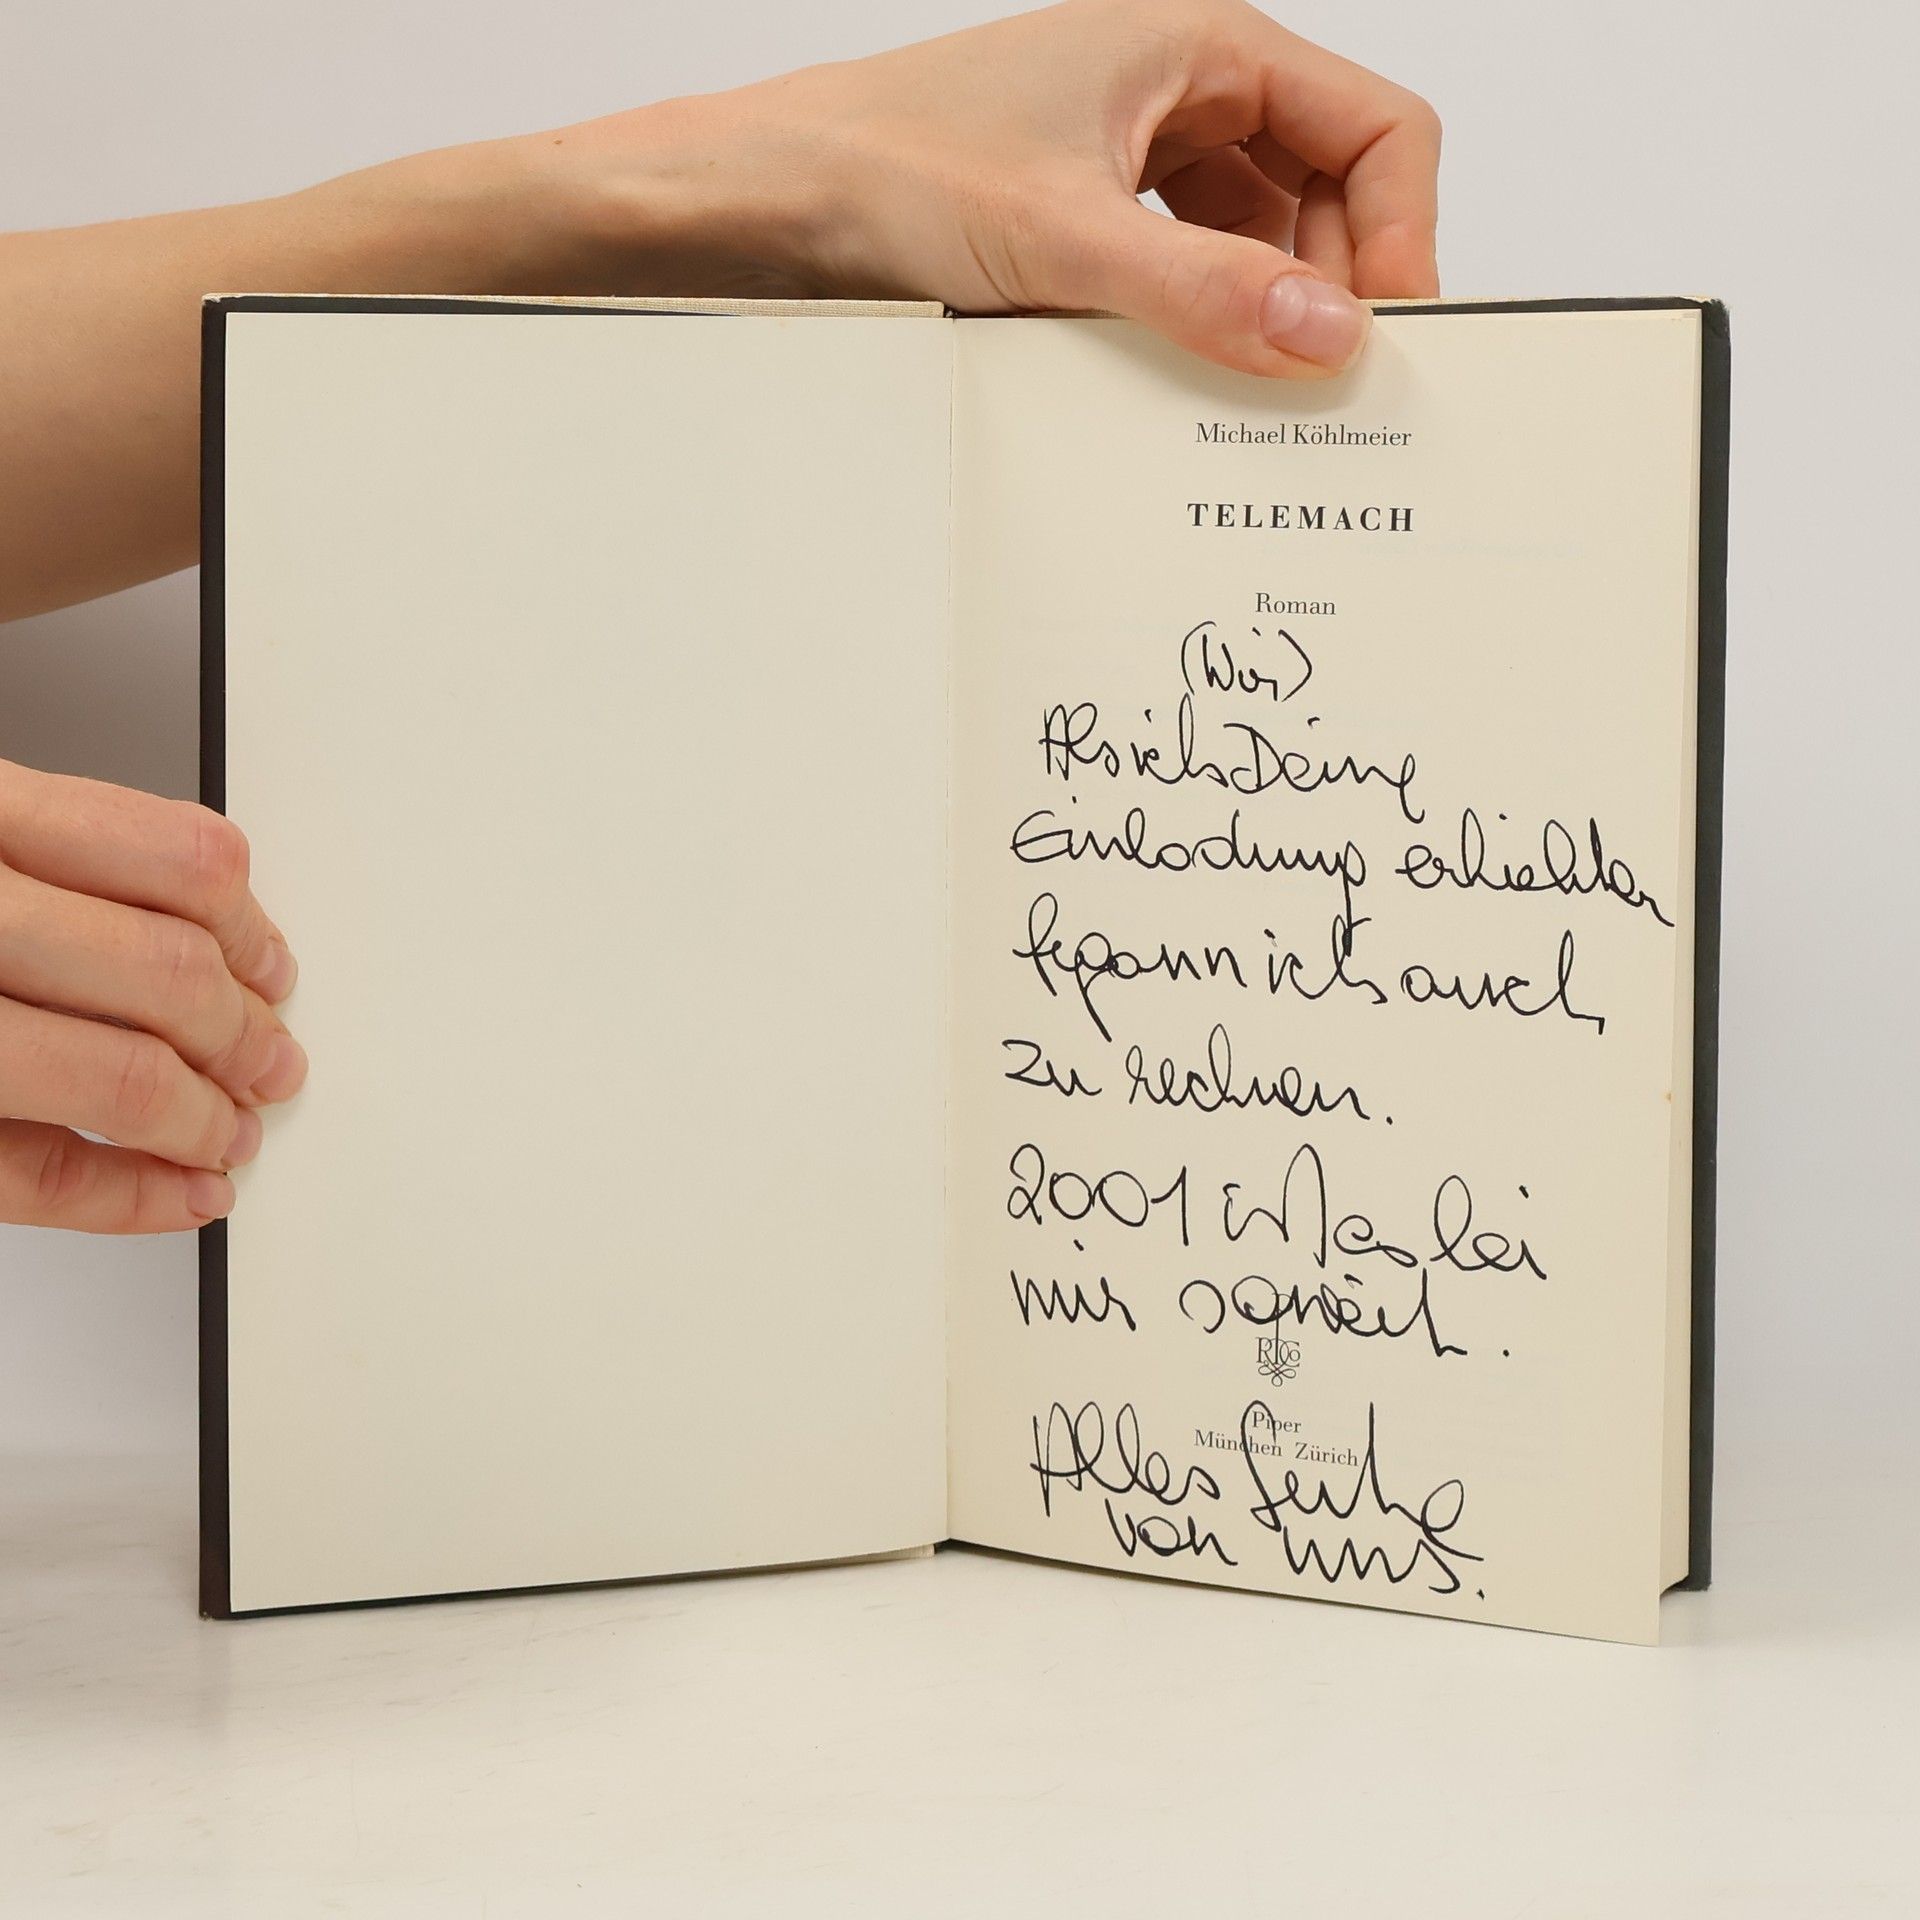 Michael Köhlmeier
TELEMACH
Roman
(Wir)
Als ich Deine
Einladung erhielten
begann ich auch
zu rechnen.
2001 ist es bei
mir soweit.
Piper
München Zürich
Alles Gute
von uns.